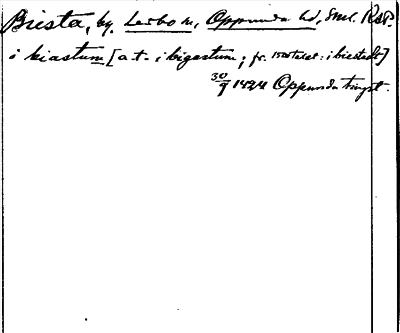 Biesta, by, Lerbo sn, Oppunda hd, Sml. RAP.
i biastum [a.t. i bigastum; fr. 1500talet: i biestadt]
30/9 1424 Oppunda tingst.